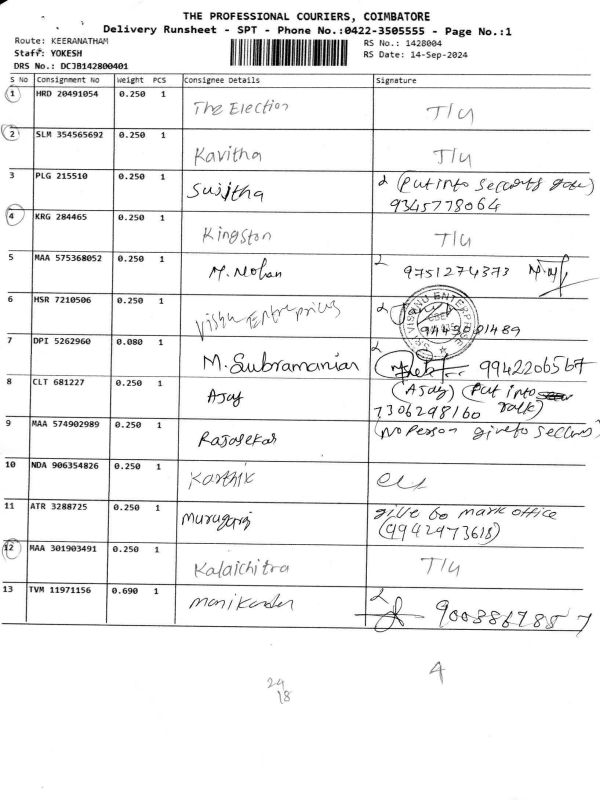 THE PROFESSIONAL COURIERS, COIMBATORE
Delivery Runsheet - SPT - Phone No.:0422-3505555 - Page No.:1
Route: KEERANATHAM
RS No.: 1428004
Staff: YOKESH
RS Date: 14-Sep-2024
DRS No.: DCJB142800401
S No Consignment No Weight PCS Consignee Details Signature
1 HRD 20491054 0.250 1 The Election T/U
2 SLM 354565692 0.250 1 Kavitha T/U
3 PLG 215510 0.250 1 Sujitha (Put into
9345778064
4 KRG 284465 0.250 1 Kingston T/U
5 MAA 575368052 0.250 1 M. Mohan 9751274373
6 HSR 7210506 0.250 1 Vishnu Enterprices
VISHNU ENTERPRISE
7 DPI 5262960 0.080 1 M. Subramanian 9942206567
8 CLT 681227 0.250 1 Ajay (Ajay) (Put into
7306298160
9 MAA 574902989 0.250 1 Rajasekar (No Person give to
10 NDA 906354826 0.250 1 Karthik
11 ATR 3288725 0.250 1 Murugaraj give to mark office
(9942973618)
12 MAA 301903491 0.250 1 Kalaichitra T/U
13 TVM 11971156 0.690 1 Manikandan 9003867857
4
29
18